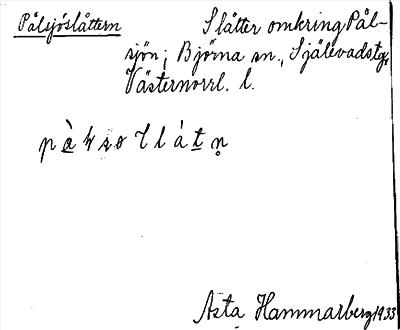 Pålsjöslåttern Slåtter omkring Pål-
sjön; Björna sn., Själevads tg,
Västernorrl. l.
Asta Hammarberg 1933